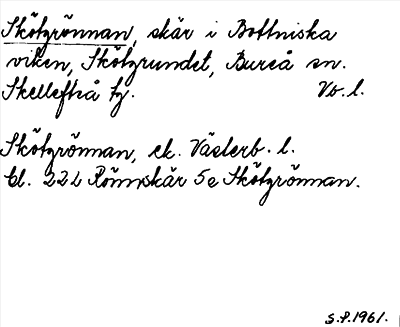 Skötgrönnan, skär i Bottniska
viken, Skötgrundet, Bureå sn.
Skellefteå tg. Vb. l.
Skötgrönnan, ek. Västerb. l.
bl. 22 L Rönnskär 5e Skötgrönnan.
S.P. 1961.